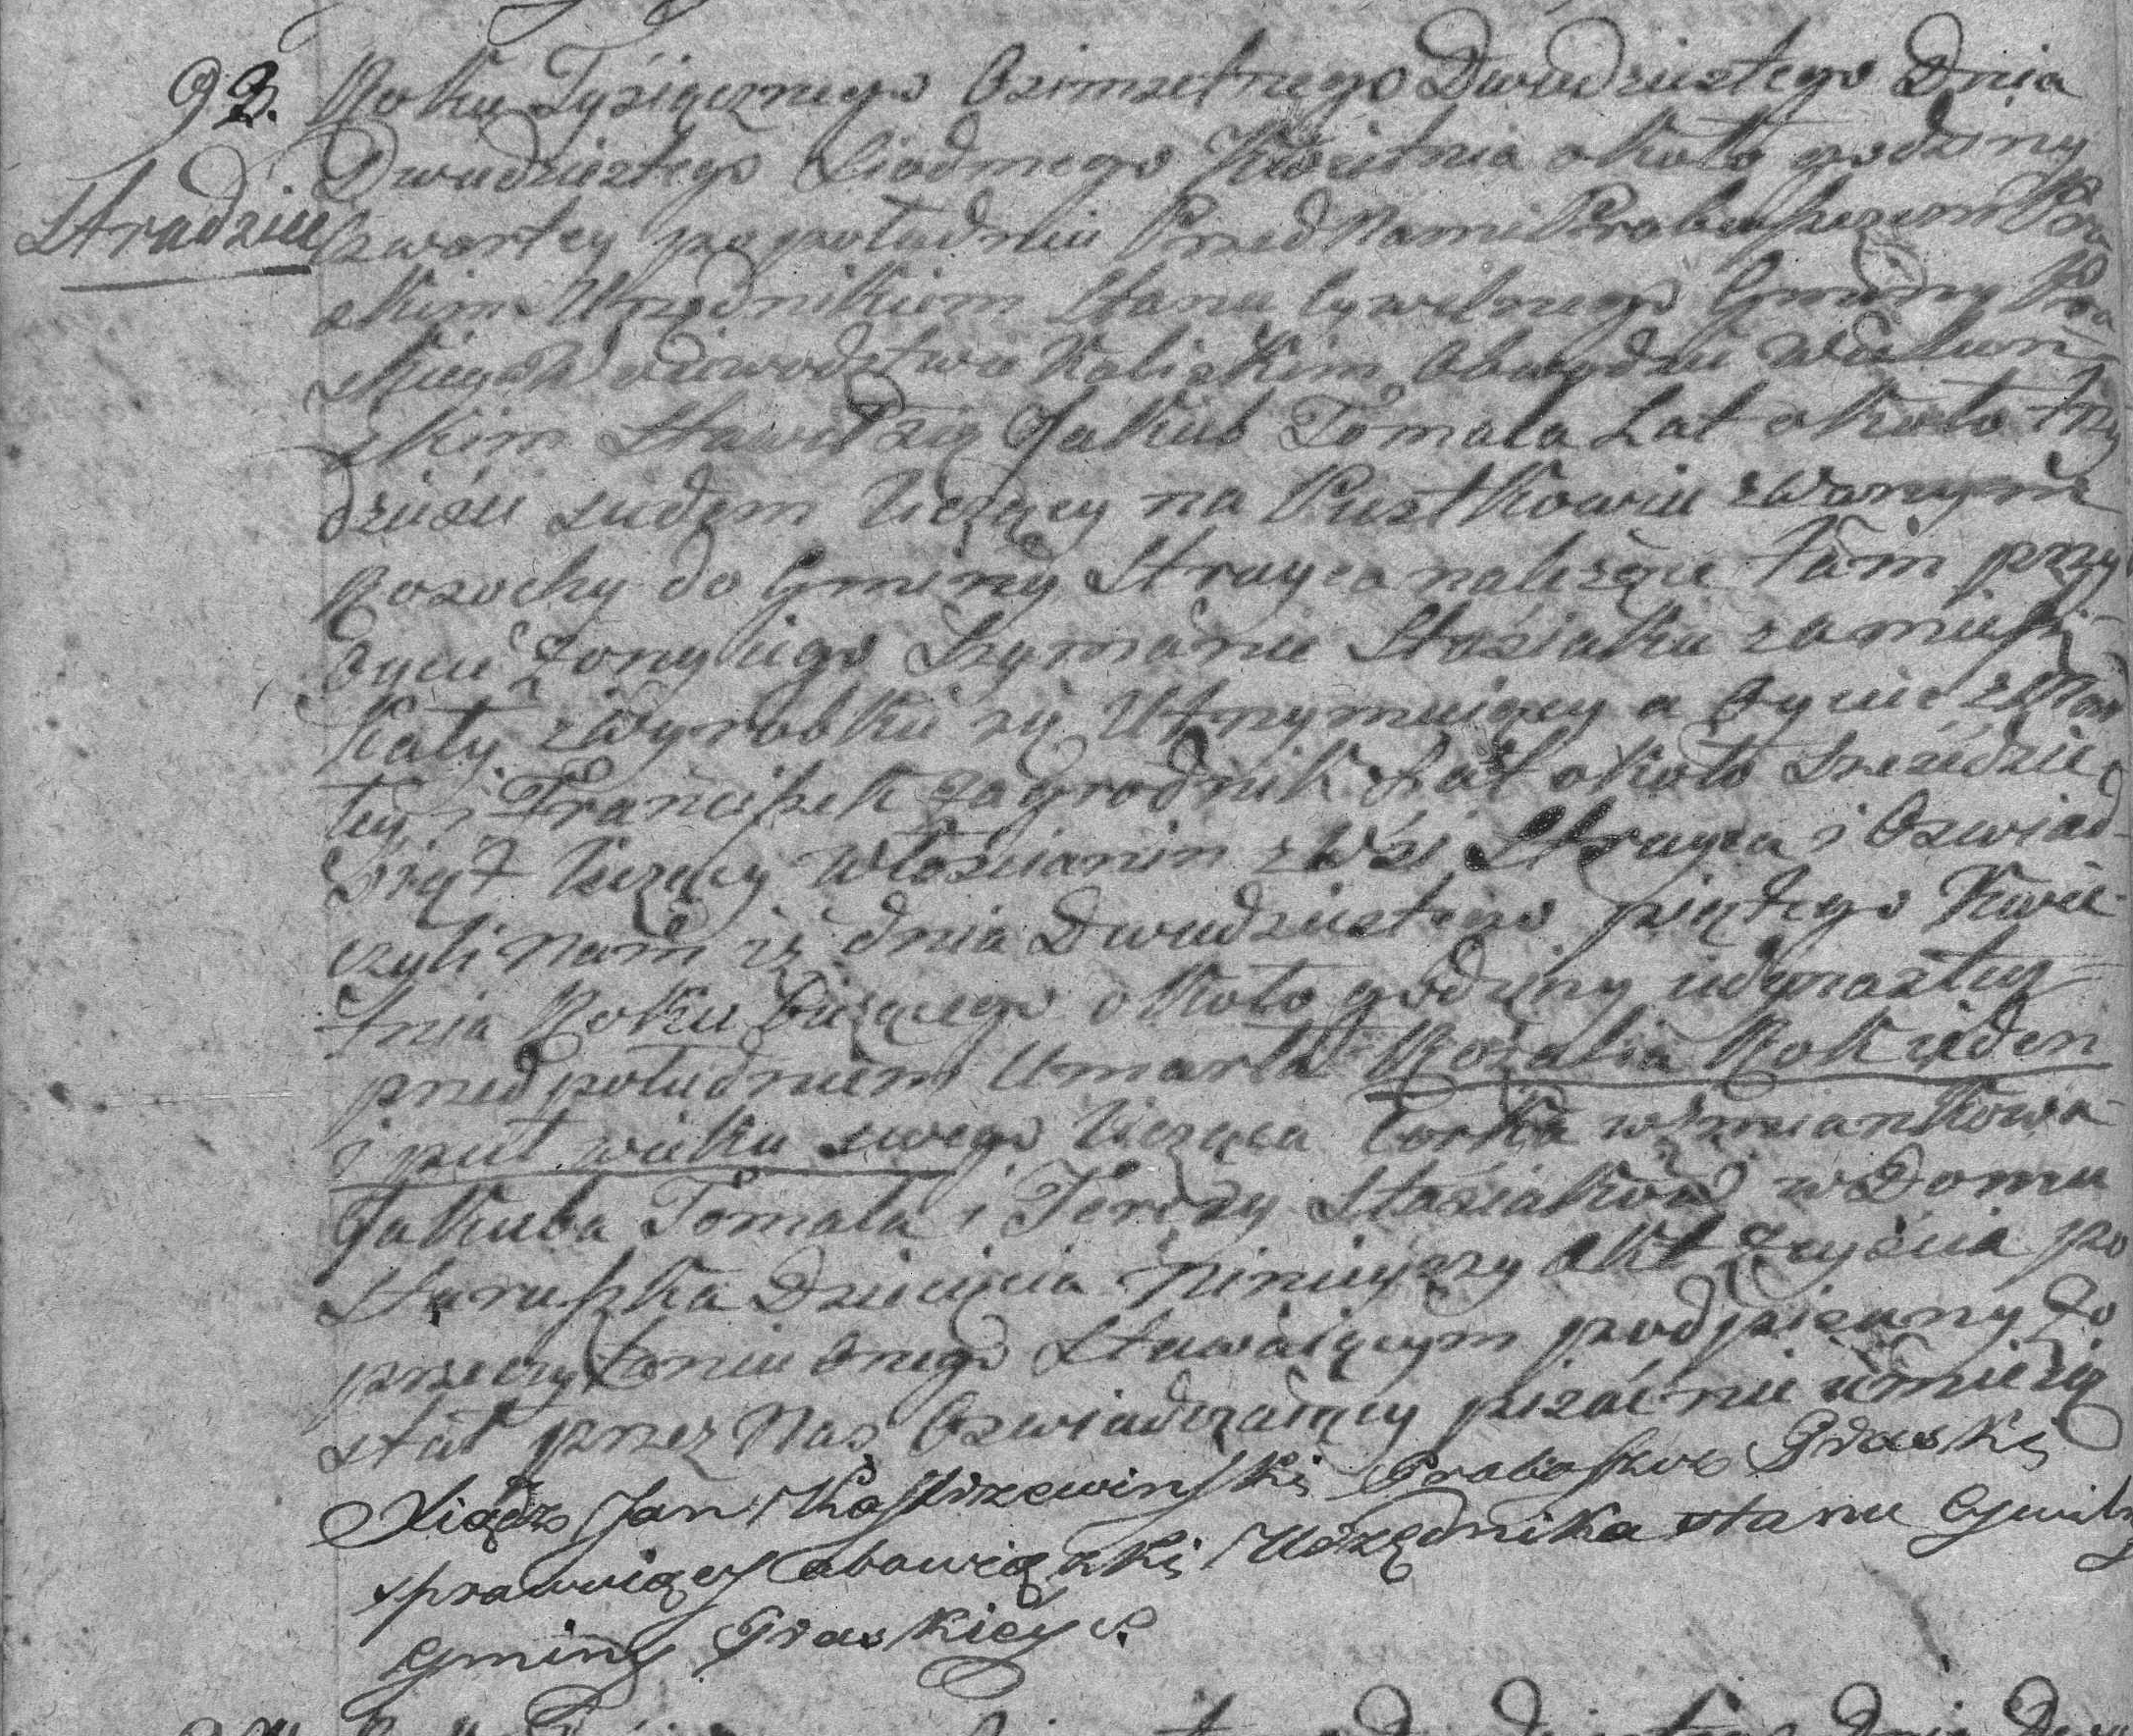 93.
Stradziec
Roku Tysiącznego Osimsetnego Dwudziestego Dnia
Dwudziestego Siodmego Kwietnia około godziny
Czwartey po południu Przed Nami Proboszczem Pra
skim Urzędnikiem Stanu Cywilnego Gminy Pra
skiey w Woiewodztwie Kaliskim Obwodzie Wielun
skim Stawił się Jakub Tomala Lat około trzy
dzieści siedem liczący na Pustkowiu zwanym
Rosochy do Gminy Stroyca należące tam przy
Oycu Żony iego Szymanie Stasiaku zamiesz-
kały z Wyrobku się Utrzymuiący a Oycie zmar
łey i Franciszek Zagrodnik Lat około Sześćdzie
siąt liczący Włoscianin z Wsi Stroyca i Oswiad-
czyli Nam iż dnia Dwudziestego piątego Kwie-
tnia Roku bieżącego około godziny iedynastey
przed południem Umarła Rozalia Rok ieden
i puł wieku swego licząca Corka wzmiankowa-
Jakuba Tomala i Terezy Stasiakow w Domu
Staruszka Dziecięcia Ninieyszy Akt Zeyścia po
przeczytaniu onego Stawaiącym podpisany zo
stał przez Nas Oswiadczaiący pisać nie umieią
Xiądz Jan Kostrzewinski Proboszcz Praski
sprawuiący obowiązki Urzędnika stanu Cywiln
gminy Praskiey